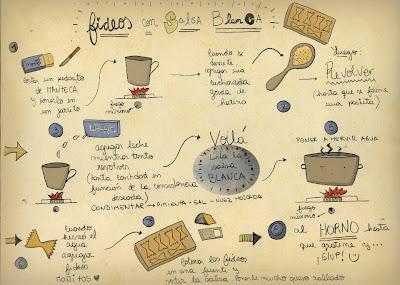 fideos con Salsa BlanCA
1
cortá un pedacito
de MANTECA
y ponerlo en
un jarrito
fuego
mínimo
cuando se
derrite,
agregar una
cucharada
gorda de
harina
2
luego:
Revolver
(hasta que se forme
una pastita)
3
agregar leche
mientras tanto
revolver
(tanta cantidad en
función de la consistencia
deseada)
CONDIMENTAR → PIMIENTA - SAL - NUEZ MOSCADA
Voilá
Linda la
salsa
BLANCA
5
PONER A HERVIR AGUA
fuego
máximo
6
cuando
hirvió el
agua
agregar
fideos
moñitos ♥
Colocar los fideos
en una fuente y
verter la salsa. Ponerle mucho queso rallado
8
al HORNO hasta
que gratine y...
¡SLUP!